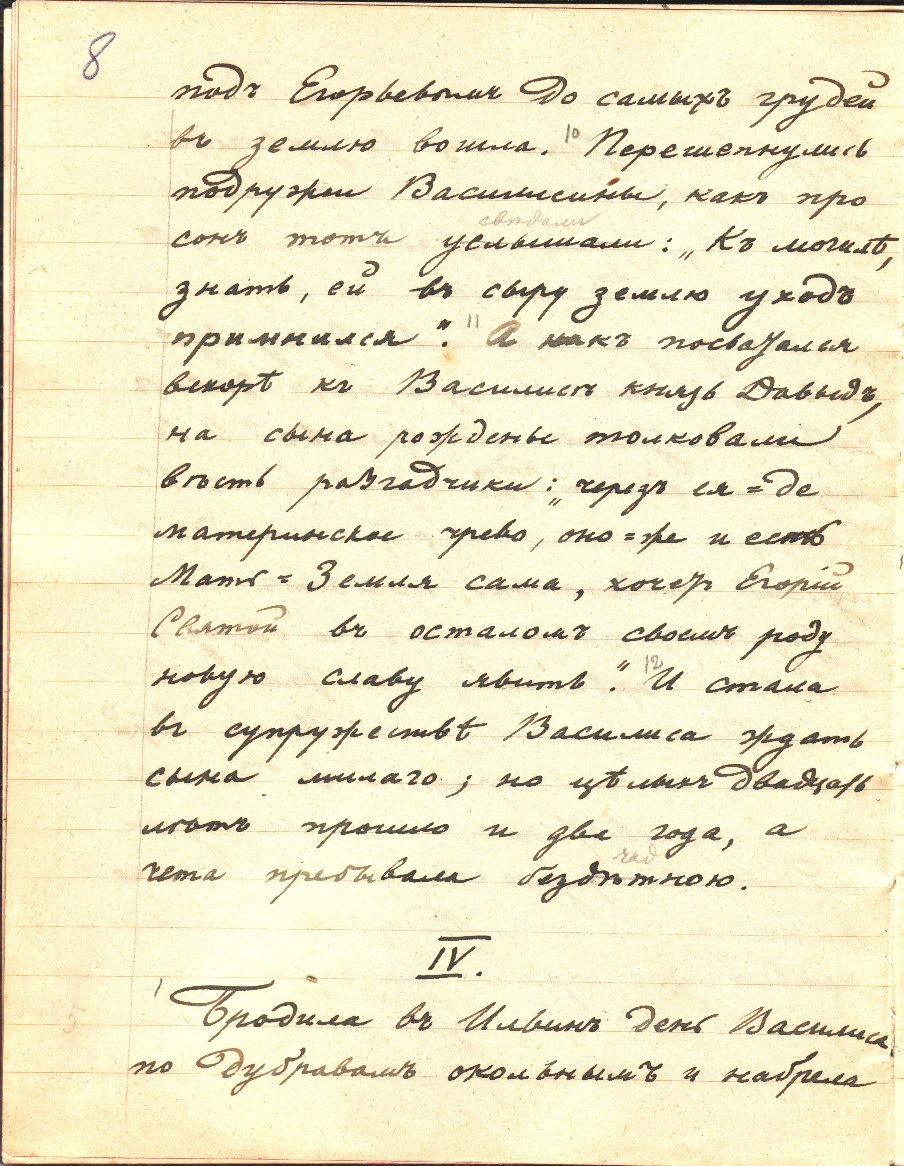 8
подъ Егорьевымъ до самыхъ грудей
въ землю вошла. 10 Перешепнулись
подружки Василисины, какъ про
свѣдали
сонъ тотъ услышали: „Къ могилѣ,
знать, ей въ сыру землю уходъ
примнился". 11 А какъ посватался
вскорѣ къ Василисѣ князь Давыдъ,
на сына рожденье толковали
вѣсть разгадчики: „черезъ ея=де
материнское чрево, оно=же и есть
Мать=Земля сама, хочетъ Егорій
Святой въ осталомъ своемъ роду
новую славу явить". 12 И стала
въ супружествѣ Василиса ждать
сына милаго; но цѣлыхъ двадцать
лѣтъ прошло и два года, а
чад
чета пребывала бездѣтною.
IV.
1 Бродила въ Ильинъ день Василиса
по дубравамъ окольнымъ и набрела